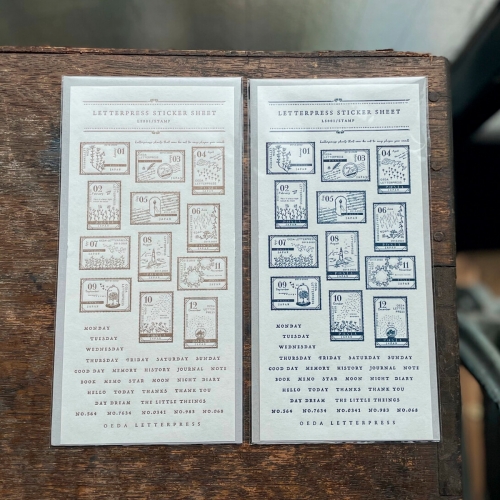 LETTERPRESS STICKER SHEET
LSS01/STAMP
01
03
04
02
05
06
07
08
11
09
10
12
MONDAY
TUESDAY
WEDNESDAY
THURSDAY FRIDAY SATURDAY SUNDAY
GOOD DAY MEMORY HISTORY JOURNAL NOTE
BOOK MEMO STAR MOON NIGHT DIARY
HELLO TODAY THANKS THANK YOU
DAY DREAM THE LITTLE THEINGS
NO.564 NO.7634 NO.0341 NO.983 NO.068
OEDA LETTERPRESS
LETTERPRESS STICKER SHEET
LSS01/STAMP
01
03
04
02
05
06
07
08
11
09
10
12
MONDAY
TUESDAY
WEDNESDAY
THURSDAY FRIDAY SATURDAY SUNDAY
GOOD DAY MEMORY HISTORY JOURNAL NOTE
BOOK MEMO STAR MOON NIGHT DIARY
HELLO TODAY THANKS THANK YOU
DAY DREAM THE LITTLE THEINGS
NO.564 NO.7634 NO.0341 NO.983 NO.068
OEDA LETTERPRESS